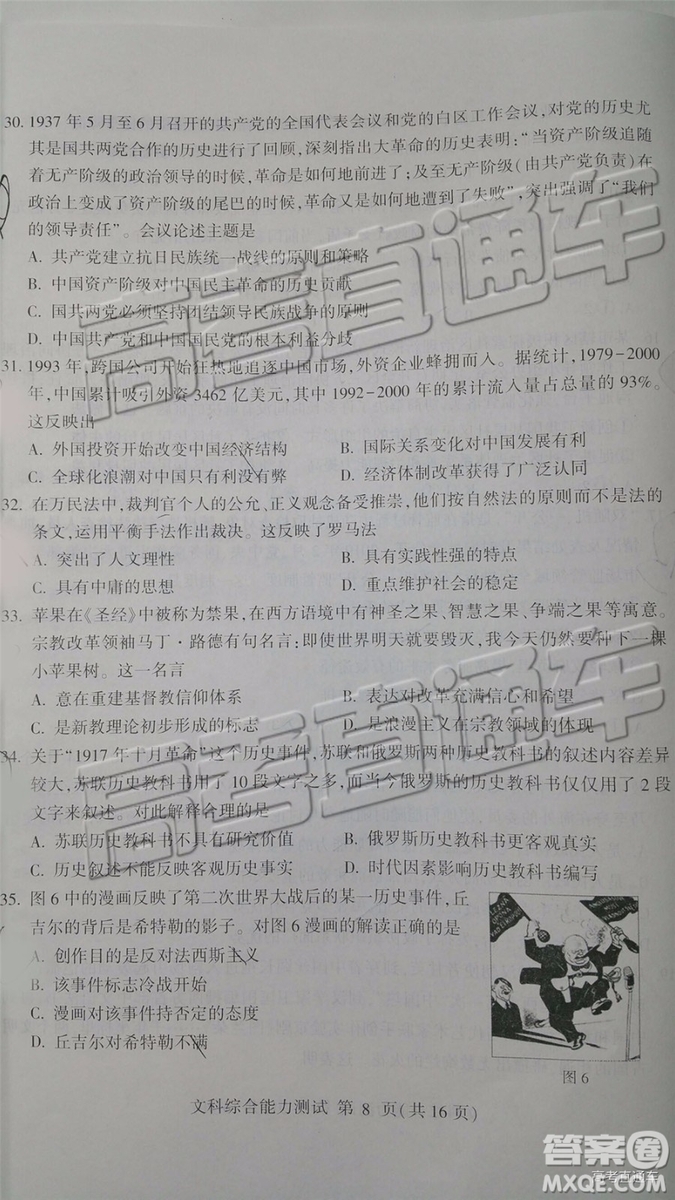 30. 1937 年 5 月至 6 月召开的共产党的全国代表会议和党的白区工作会议，对党的历史尤
其是国共两党合作的历史进行了回顾，深刻指出大革命的历史表明：“当资产阶级追随
着无产阶级的政治领导的时候，革命是如何地前进了；及至无产阶级（由共产党负责）在
政治上变成了资产阶级的尾巴的时候，革命又是如何地遭到了失败”，突出强调了“我们
的领导责任”。会议论述主题是
A. 共产党建立抗日民族统一战线的原则和策略
B. 中国资产阶级对中国民主革命的历史贡献
C. 国共两党必须坚持团结领导民族战争的原则
D. 中国共产党和中国国民党的根本利益分歧
31. 1993 年，跨国公司开始狂热地追逐中国市场，外资企业蜂拥而入。据统计，1979－2000
年，中国累计吸引外资 3462 亿美元，其中 1992－2000 年的累计流入量占总量的 93%。
这反映出
A. 外国投资开始改变中国经济结构 B. 国际关系变化对中国发展有利
C. 全球化浪潮对中国只有利没有弊 D. 经济体制改革获得了广泛认同
32. 在万民法中，裁判官个人的公允、正义观念备受推崇，他们按自然法的原则而不是法的
条文，运用平衡手法作出裁决。这反映了罗马法
A. 突出了人文理性 B. 具有实践性强的特点
C. 具有中庸的思想 D. 重点维护社会的稳定
33. 苹果在《圣经》中被称为禁果，在西方语境中有神圣之果、智慧之果、争端之果等寓意。
宗教改革领袖马丁·路德有句名言：即使世界明天就要毁灭，我今天仍然要种下一棵
小苹果树。这一名言
A. 意在重建基督教信仰体系 B. 表达对改革充满信心和希望
C. 是新教理论初步形成的标志 D. 是浪漫主义在宗教领域的体现
34. 关于“1917 年十月革命”这个历史事件，苏联和俄罗斯两种历史教科书的叙述内容差异
较大，苏联历史教科书用了 10 段文字之多，而当今俄罗斯的历史教科书仅仅用了 2 段
文字来叙述。对此解释合理的是
A. 苏联历史教科书不具有研究价值 B. 俄罗斯历史教科书更客观真实
C. 历史叙述不能反映客观历史事实 D. 时代因素影响历史教科书编写
35. 图 6 中的漫画反映了第二次世界大战后的某一历史事件，丘
吉尔的背后是希特勒的影子。对图 6 漫画的解读正确的是
A. 创作目的是反对法西斯主义
B. 该事件标志冷战开始
C. 漫画对该事件持否定的态度
D. 丘吉尔对希特勒不满
图 6
文科综合能力测试 第 8 页（共 16 页）
高考直通车
高考直通车
答案圈
MXQE.COM
高考直通车